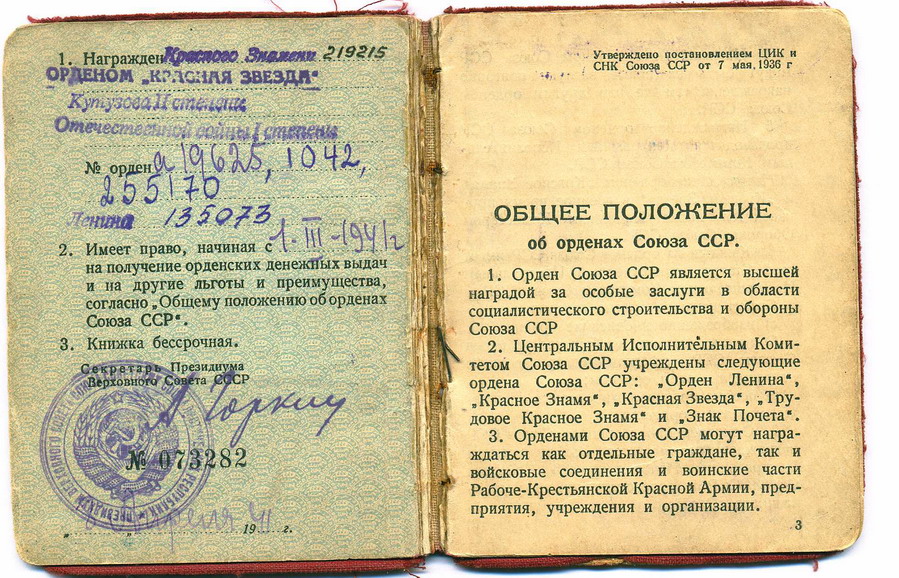 1. Награжден Красного Знамени 219215
ОРДЕНОМ „КРАСНАЯ ЗВЕЗДА“
Кутузова II степени
Отечественной войны I степени
№ орден а 19625, 1042,
255170
Ленина 135073
2. Имеет право, начиная с 1.III-1941г
на получение орденских денежных выдач
и на другие льготы и преимущества,
согласно „Общему положению об орденах
Союза ССР“.
3. Книжка бессрочная.
Секретарь Президиума
Верховного Совета СССР
А Горкин
№ 073282
апреля 41
„ “ 19 г.
Утверждено постановлением ЦИК и
СНК Союза ССР от 7 мая, 1936 г
ОБЩЕЕ ПОЛОЖЕНИЕ
об орденах Союза ССР.
1. Орден Союза ССР является высшей
наградой за особые заслуги в области
социалистического строительства и обороны
Союза ССР
2. Центральным Исполнительным Коми-
тетом Союза ССР учреждены следующие
ордена Союза ССР: „Орден Ленина“,
„Красное Знамя“, „Красная Звезда“, „Тру-
довое Красное Знамя“ и „Знак Почета“.
3. Орденами Союза ССР могут награ-
ждаться как отдельные граждане, так и
войсковые соединения и воинские части
Рабоче-Крестьянской Красной Армии, пред-
приятия, учреждения и организации.
3